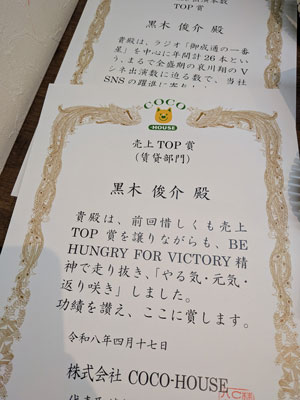 TOP 賞
黒木 俊介 殿
貴殿は、ラジオ「御成通の一番
星」を中心に年間計26本とい
う、まるで全盛期の哀川翔のV
シネ出演数に迫る数で、当社
SNSの躍進に
COCO
-HOUSE
売上TOP賞
(賃貸部門)
黒木 俊介 殿
貴殿は、前回惜しくも売上
TOP 賞を譲りながらも、BE
HUNGRY FOR VICTORY精
神で走り抜き、「やる気・元気・
返り咲き」しました。
功績を讃え、ここに賞します。
令和八年四月十七日
株式会社 COCO-HOUSE